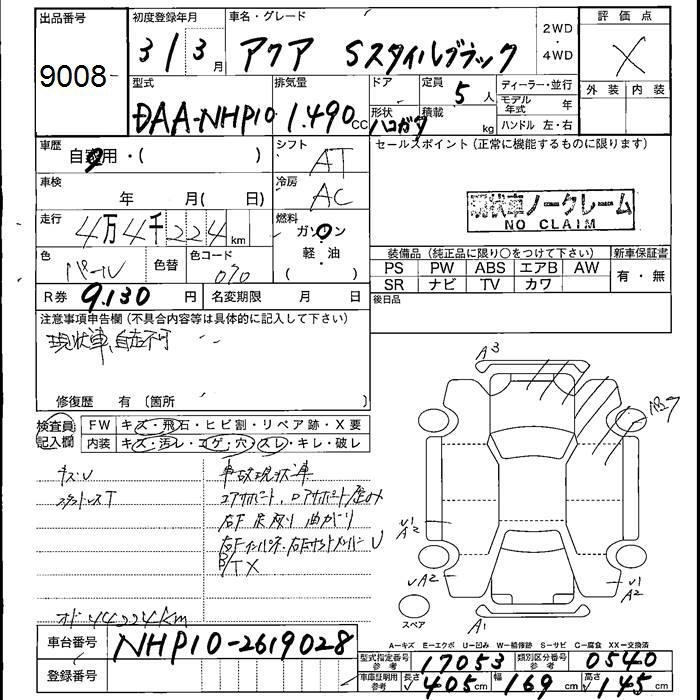 出品番号 初度登録年月 車名・グレード 2WD・4WD 評価点
9008 3 / 3 月 アクア Sスタイルブラック X
型式 排気量 ドア 定員 5 人 ディーラー・並行 外装 内装
DAA-NHP10 1.490 CC 形状 ハコガタ 積載 kg モデル年式 年
ハンドル 左・右
車歴 自家用・( ) シフト AT セールスポイント (正常に機能するものに限ります)
車検 年 月( 日) 冷房 AC
現状車ノークレーム
NO CLAIM
走行 4万4千224km 燃料 ガソリン
軽・油
( )
色 パール 色替 色コード 070
装備品 (純正品に限り〇をつけて下さい) 新車保証書
PS PW ABS エアB AW 有・無
SR ナビ TV カワ
R券 9.130 円 名変期限 月 日 後日品
注意事項申告欄 (不具合内容等は具体的に記入して下さい)
現状車、自走不可
修復歴 有 〔箇所 〕
A3
検査員記入欄 FW キズ・飛石・ヒビ割・リペア跡・X要
内装 キズ・汚レ・コゲ・穴・スレ・キレ・破レ
キズU 事故現状車
スタッドレスT コアサポート、ロアサポート歪み
右F足廻り曲がり
右Fインパネ、右Fサイドメンバー U
B/TX
U1
A2
U1
A2
UA2
A1
スペア
オド44224km
A-キズ E-エクボ U-凹み W-補修跡 S-サビ C-腐食 XX-交換済
車台番号 NHP10-2619028
型式指定番号参考 17053 類別区分番号参考 0540
登録番号 車庫証明用参考 長さ 405cm 幅 169cm 高さ 145cm